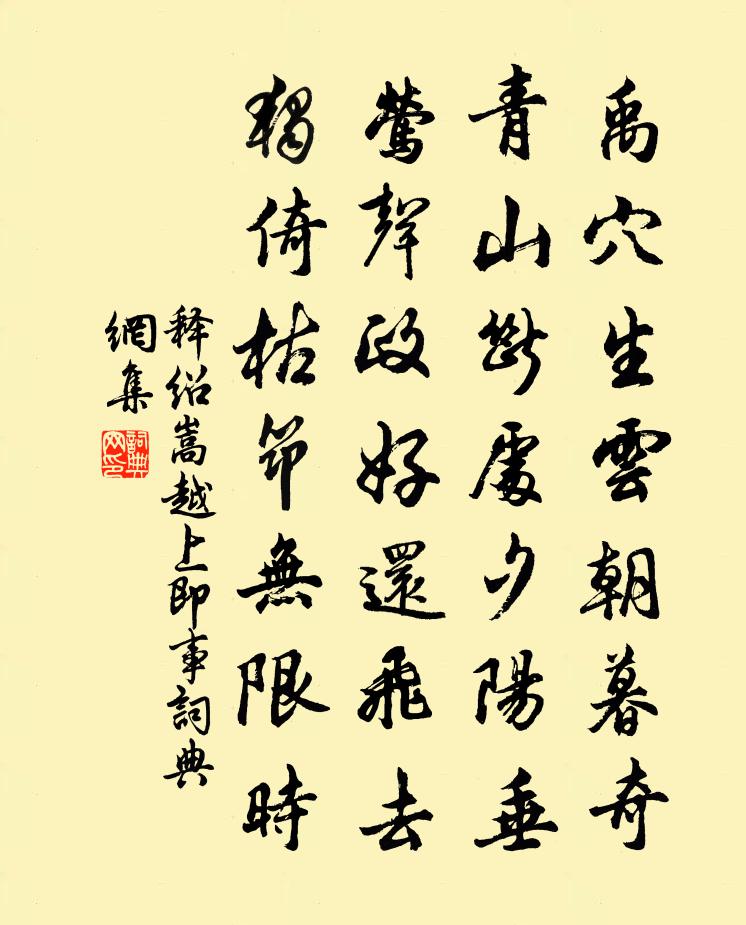 禹穴生雲朝暮奇
青山斷處夕陽垂
鶯聲政好還飛去
獨倚枯笻無限時
释紹嵩越上即事詞典
網集
詞典網印